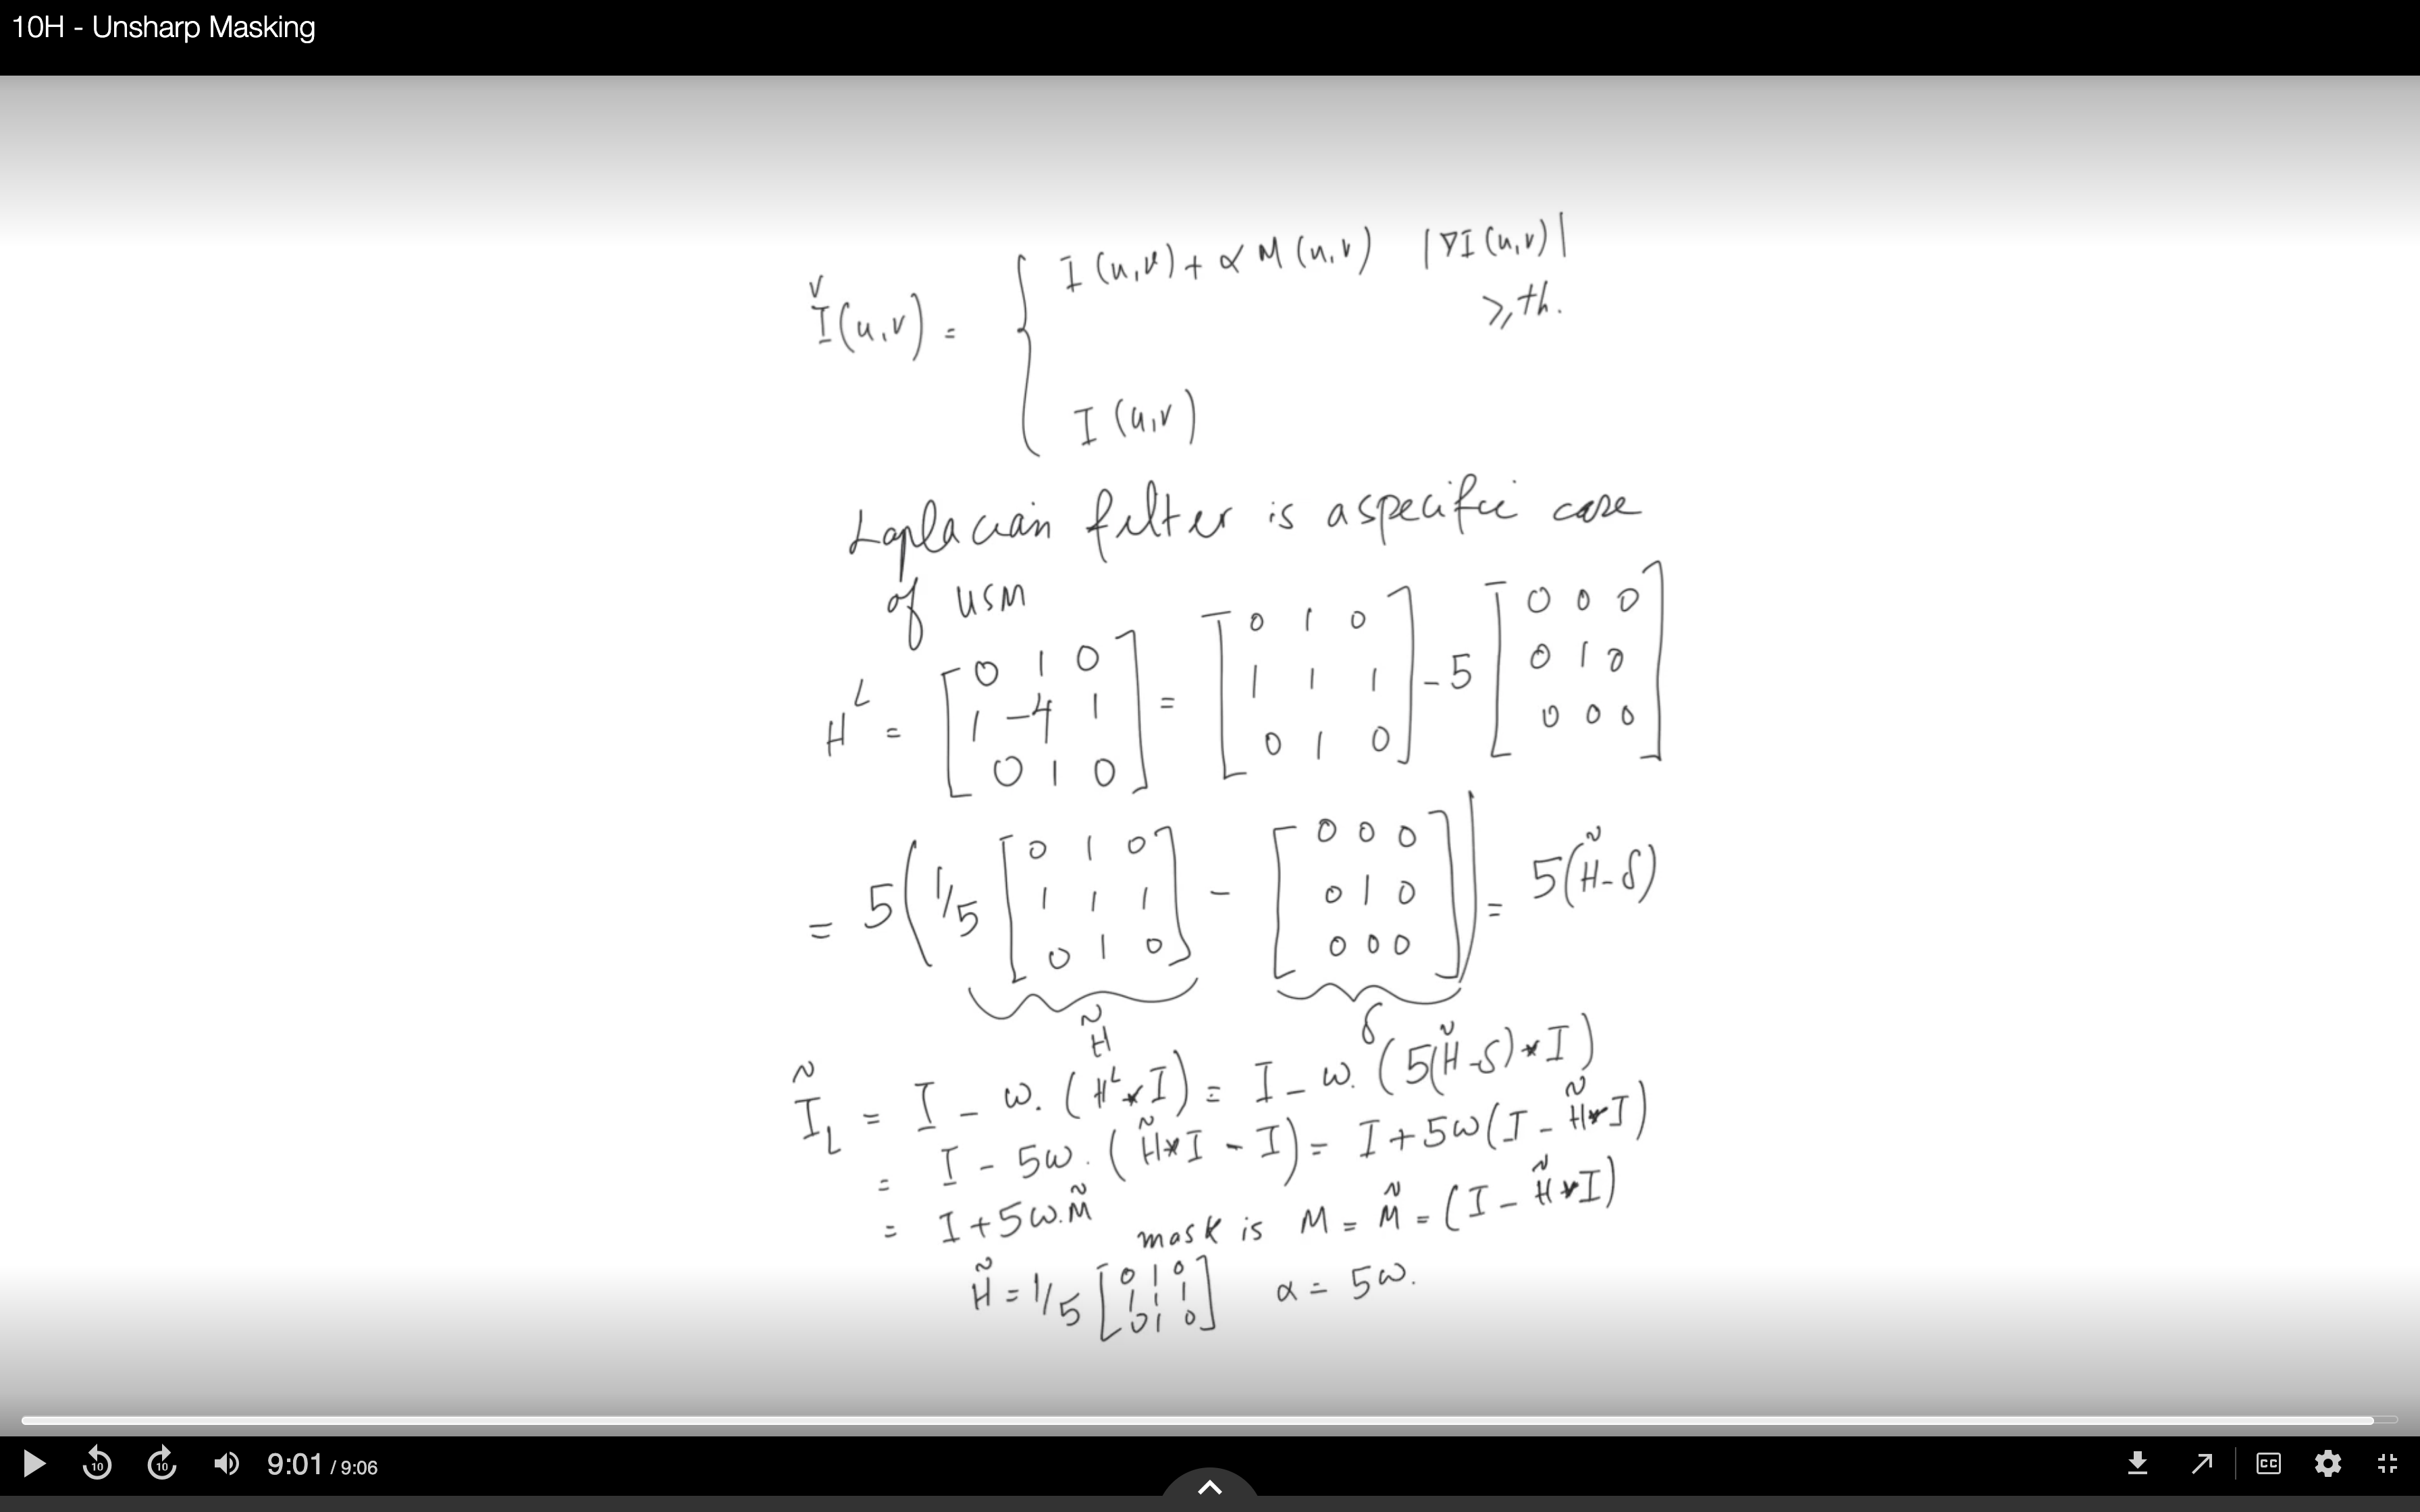 10H - Unsharp Masking
Ǐ(u,v) = { I(u,v) + α M(u,v)   |∇I(u,v)|
≥ th.
I(u,v)
Laplacian filter is a specific case
of USM
H^L = [0 1 0; 1 -4 1; 0 1 0] = [0 1 0; 1 1 1; 0 1 0] - 5 [0 0 0; 0 1 0; 0 0 0]
= 5( 1/5 [0 1 0; 1 1 1; 0 1 0] - [0 0 0; 0 1 0; 0 0 0] ) = 5(H̃ - δ)
H̃ δ
Ĩ_L = I - ω. (H^L * I) = I - ω. (5(H̃ - δ) * I)
= I - 5ω. (H̃ * I - I) = I + 5ω(I - H̃ * I)
= I + 5ω.M̃   mask is M = M̃ = (I - H̃ * I)
H̃ = 1/5 [0 1 0; 1 1 1; 0 1 0]   α = 5ω.
10 10 9:01 / 9:06 CC